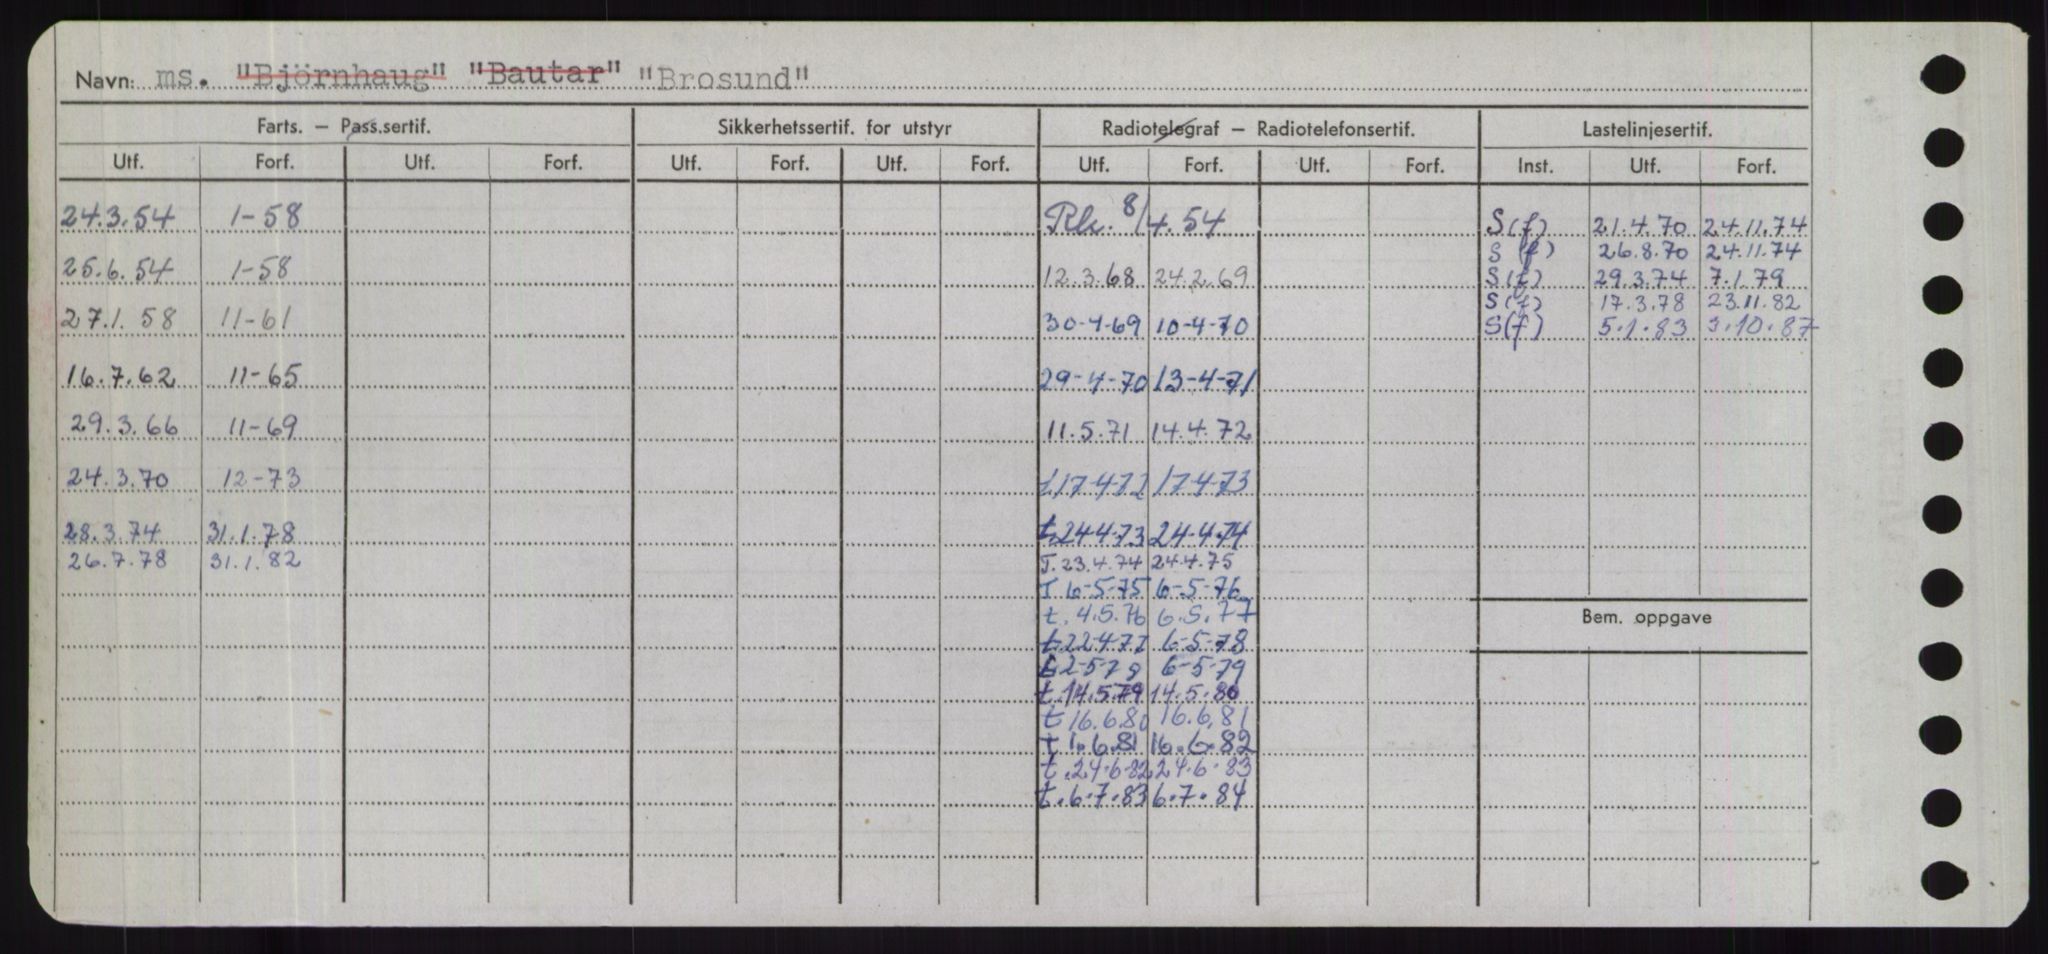 Navn: ms. "Björnhaug" "Bautar" "Brosund"
Farts. – Pass.sertif. Sikkerhetssertif. for utstyr Radiotelegraf – Radiotelefonsertif. Lastelinjesertif.
Utf. Forf. Utf. Forf. Utf. Forf. Utf. Forf. Utf. Forf. Utf. Forf. Inst. Utf. Forf.
24.3.54 1-58 Rk. 8/4.54 S(f) 21.4.70 24.11.74
S (f) 26.8.70 24.11.74
25.6.54 1-58 12.3.68 24.2.69 S(f) 29.3.74 7.1.79
S(f) 17.3.78 23.11.82
27.1.58 11-61 30-4-69 10-4-70 S(f) 5.1.83 3.10.87
16.7.62 11-65 29-4-70 13-4-71
29.3.66 11-69 11.5.71 14.4.72
24.3.70 12-73 t.17-4-72 17-4-73
28.3.74 31.1.78 t.24-4-73 24-4-74
26.7.78 31.1.82 T.23.4.74 24.4.75
T 6-5-75 6-5-76
t. 4.5.76 6.5.77
t 22-4-77 6-5-78
t 2-5-79 6-5-79
t.14.5.79 14.5.80
t 16.6.80 16.6.81
t 1.6.81 16.6.82
t.24.6.82 24.6.83
t.6.7.83 6.7.84
Bem. oppgave